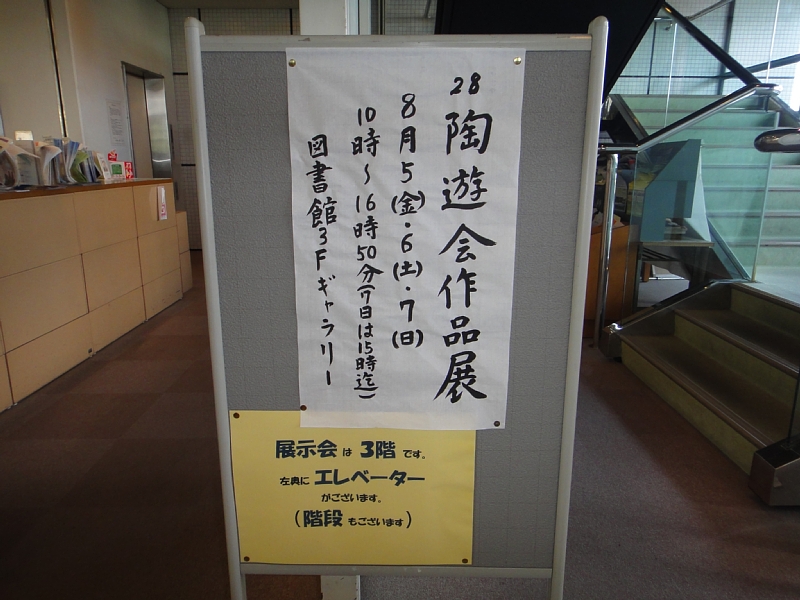 28
陶遊会作品展
8月5(金)・6(土)・7(日)
10時〜16時50分(7日は15時迄)
図書館3Fギャラリー
展示会 は 3階 です。
左奥に エレベーター
がございます。
(階段 もございます)